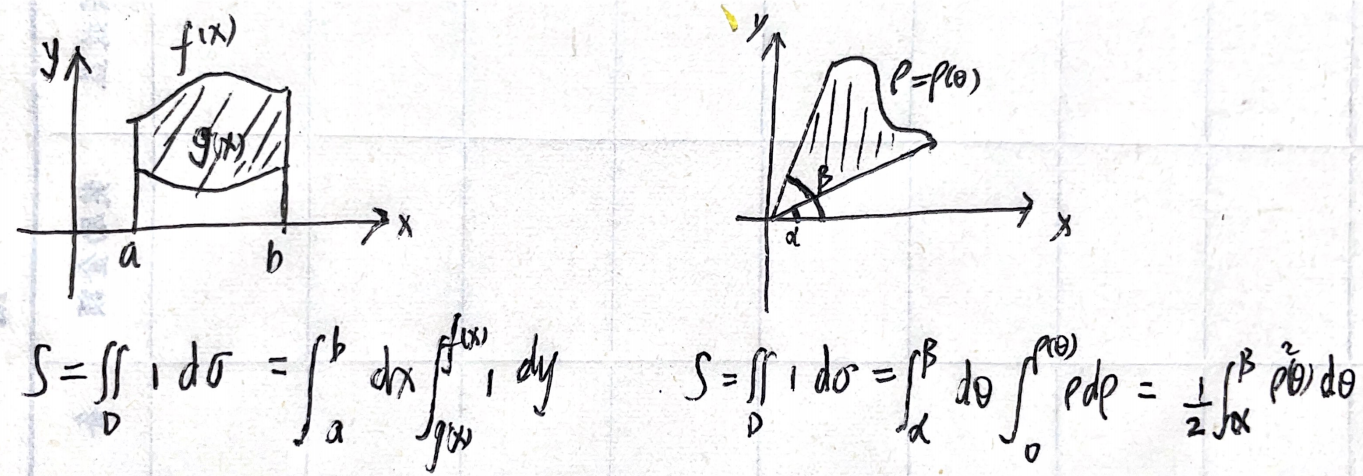 f(x)
y
g(x)
a b x
y
ρ=ρ(θ)
β
α x
S = ∬_D 1 dσ = ∫_a^b dx ∫_{g(x)}^{f(x)} 1 dy
S = ∬_D 1 dσ = ∫_α^β dθ ∫_0^{ρ(θ)} ρdρ = 1/2 ∫_α^β ρ²(θ)dθ